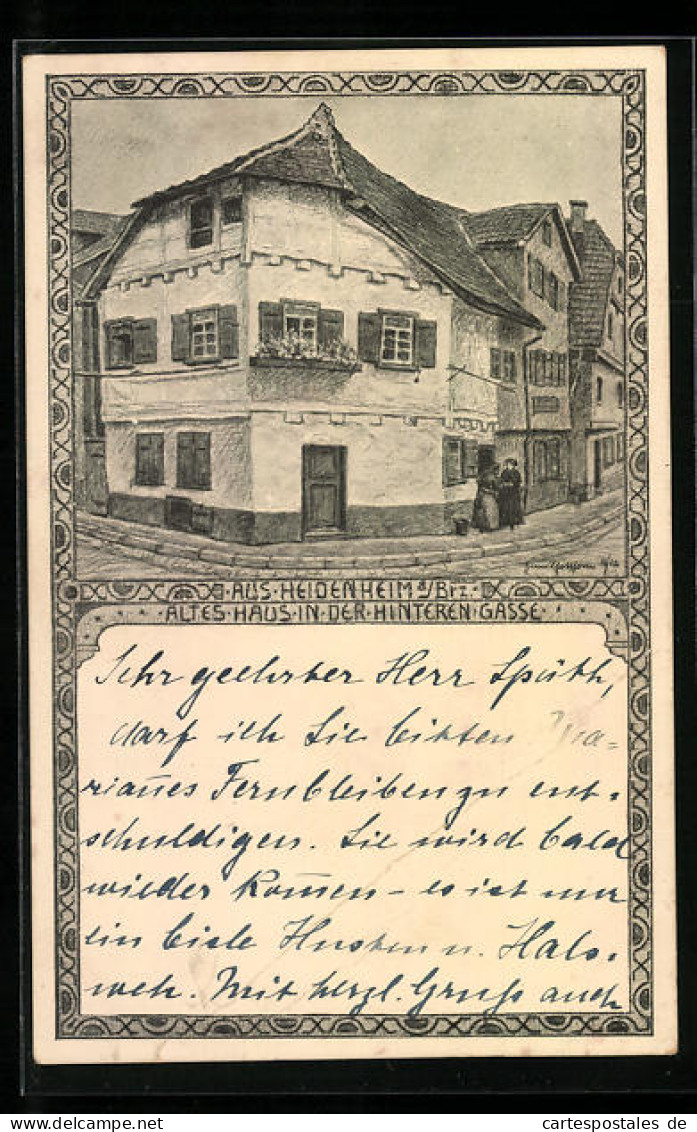 AUS·HEIDENHEIM a/Brz.
ALTES·HAUS·IN·DER·HINTEREN·GASSE
Sehr geehrter Herr Späth,
darf ich Sie bitten Ma=
riannes Fernbleiben zu ent=
schuldigen. Sie wird bald
wieder kom̄en – es ist nur
ein bisle Husten u. Hals=
weh. Mit herzl. Gruß auch
www.delcampe.net
cartespostales de